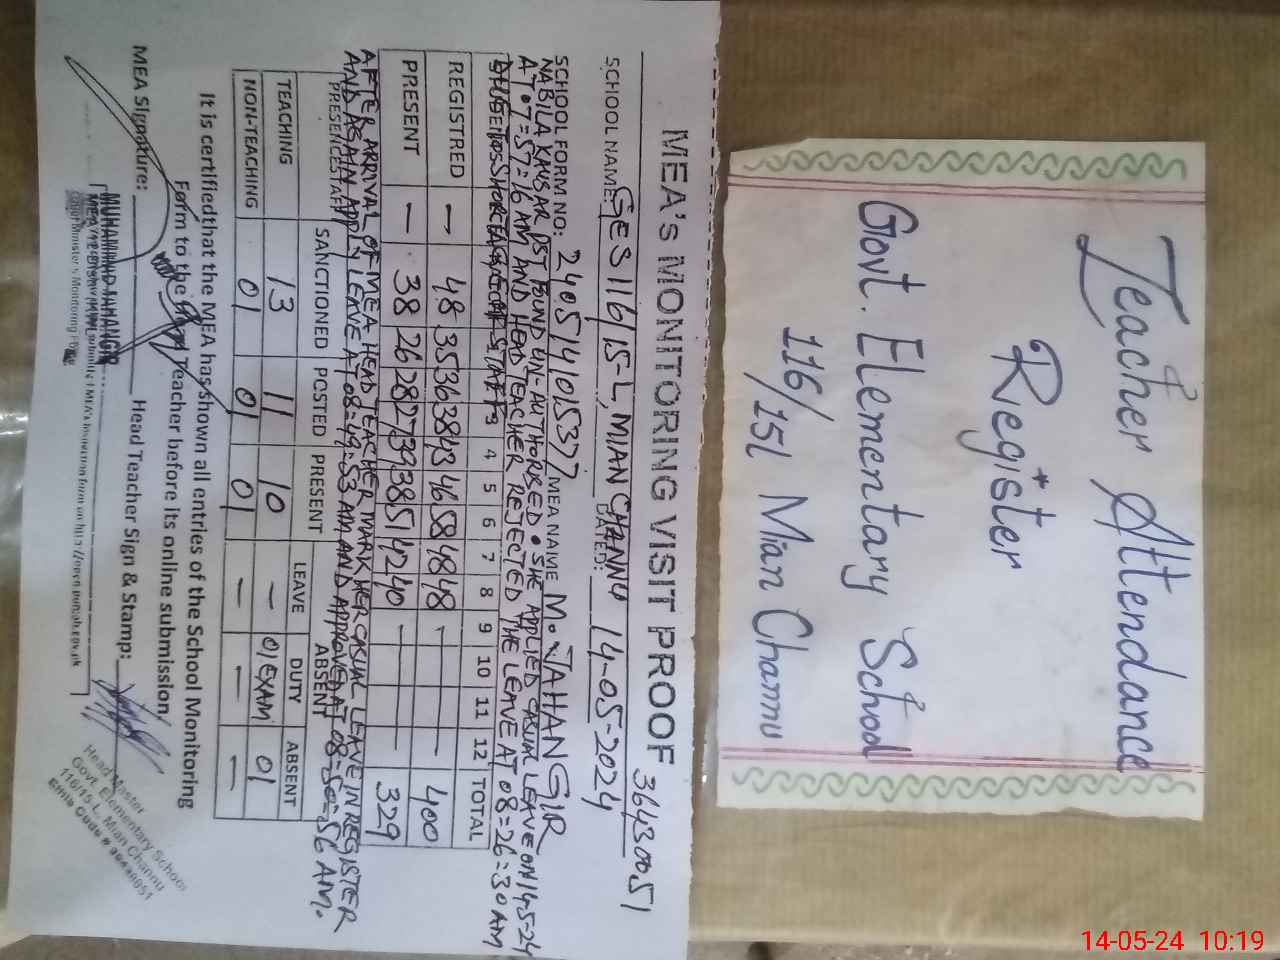 Teacher Attendance
Register
Govt. Elementary School
116/15L Mian Channu
MEA'S MONITORING VISIT PROOF 36430051
SCHOOL NAME: GES 116/15-L, MIAN CHANNU DATED: 14-05-2024
SCHOOL FORM NO: 240514015377 MEA NAME M. JAHANGIR
NABILA KAUSAR PST FOUND UN-AUTHORSED. SHE APPLIED CASUAL LEAVE ON 14-5-24
AT 07=57=16 AM AND HEAD TEACHER REJECTED THE LEAVE AT 08=26=30 AM
DUE TO SHORTAGE OF STAFF 3 4 5 6 7 8 9 10 11 12 TOTAL
REGISTRED — 48 35 36 38 43 46 58 48 48 - — 400
PRESENT — 38 26 28 27 39 38 51 42 40 - — 329
AFTER ARRIVAL OF MEA HEAD TEACHER MARK HER CASUAL LEAVE IN REGISTER
AND AGAIN APPLY LEAVE AT 08=49=53 AM AND APPROVED AT 08=50=56 AM.
PRESENCE STAFF SANCTIONED POSTED PRESENT ABSENT
LEAVE DUTY ABSENT
TEACHING 13 11 10 — 01 EXAM 01
NON-TEACHING 01 01 01 — — —
It is certified that the MEA has shown all entries of the School Monitoring
Form to the Head Teacher before its online submission
MEA Signature: Head Teacher Sign & Stamp:
MUHAMMAD JAHANGIR
Head Master
Govt. Elementary School
116/15-L, Mian Channu
14-05-24 10:19